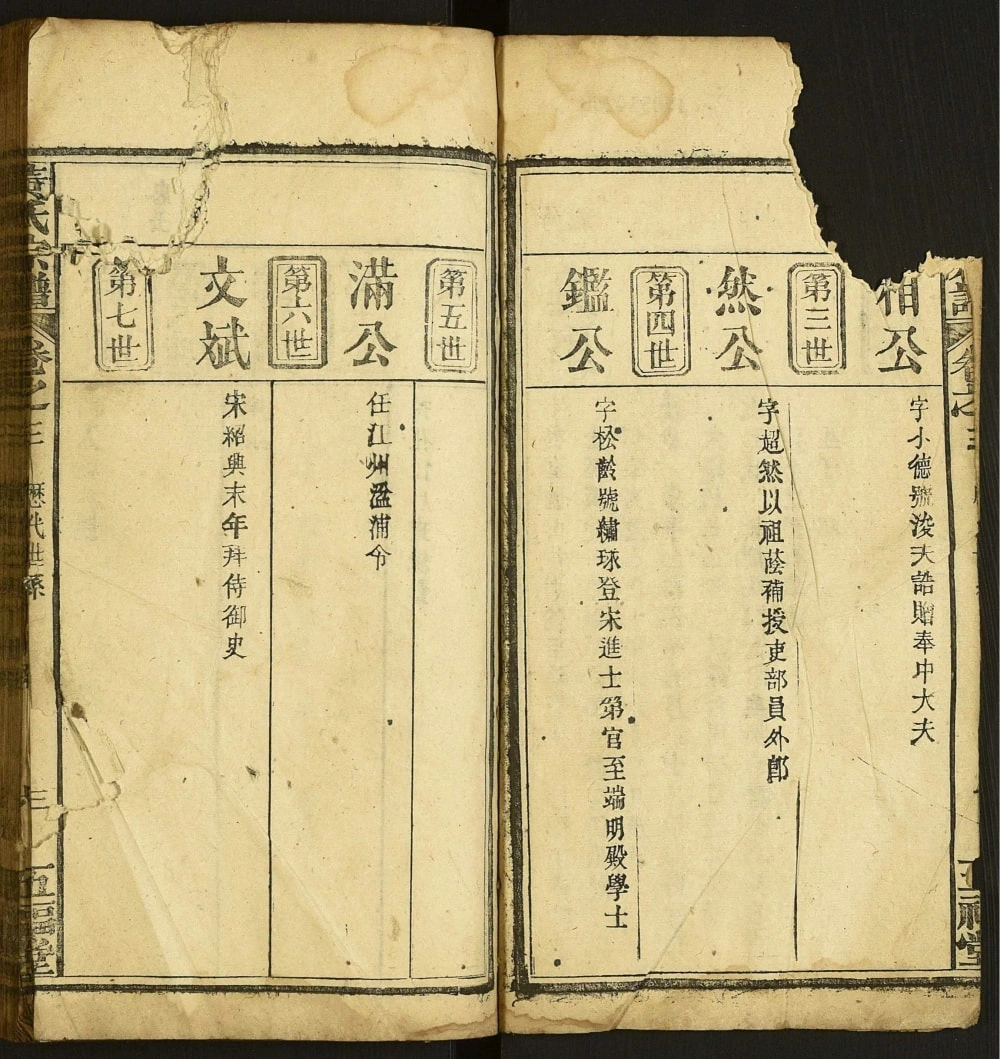 相公
字小德號浚夫誥贈奉中大夫
第三世
然公
字超然以祖蔭補授吏部員外郎
第四世
鑑公
字松齡號繡球登宋進士第官至端明殿學士
第五世
滿公
任江州湓浦令
第六世
文斌
宋紹興末年拜侍御史
第七世
氏宗譜 卷之三 歷代世系 三 五福堂